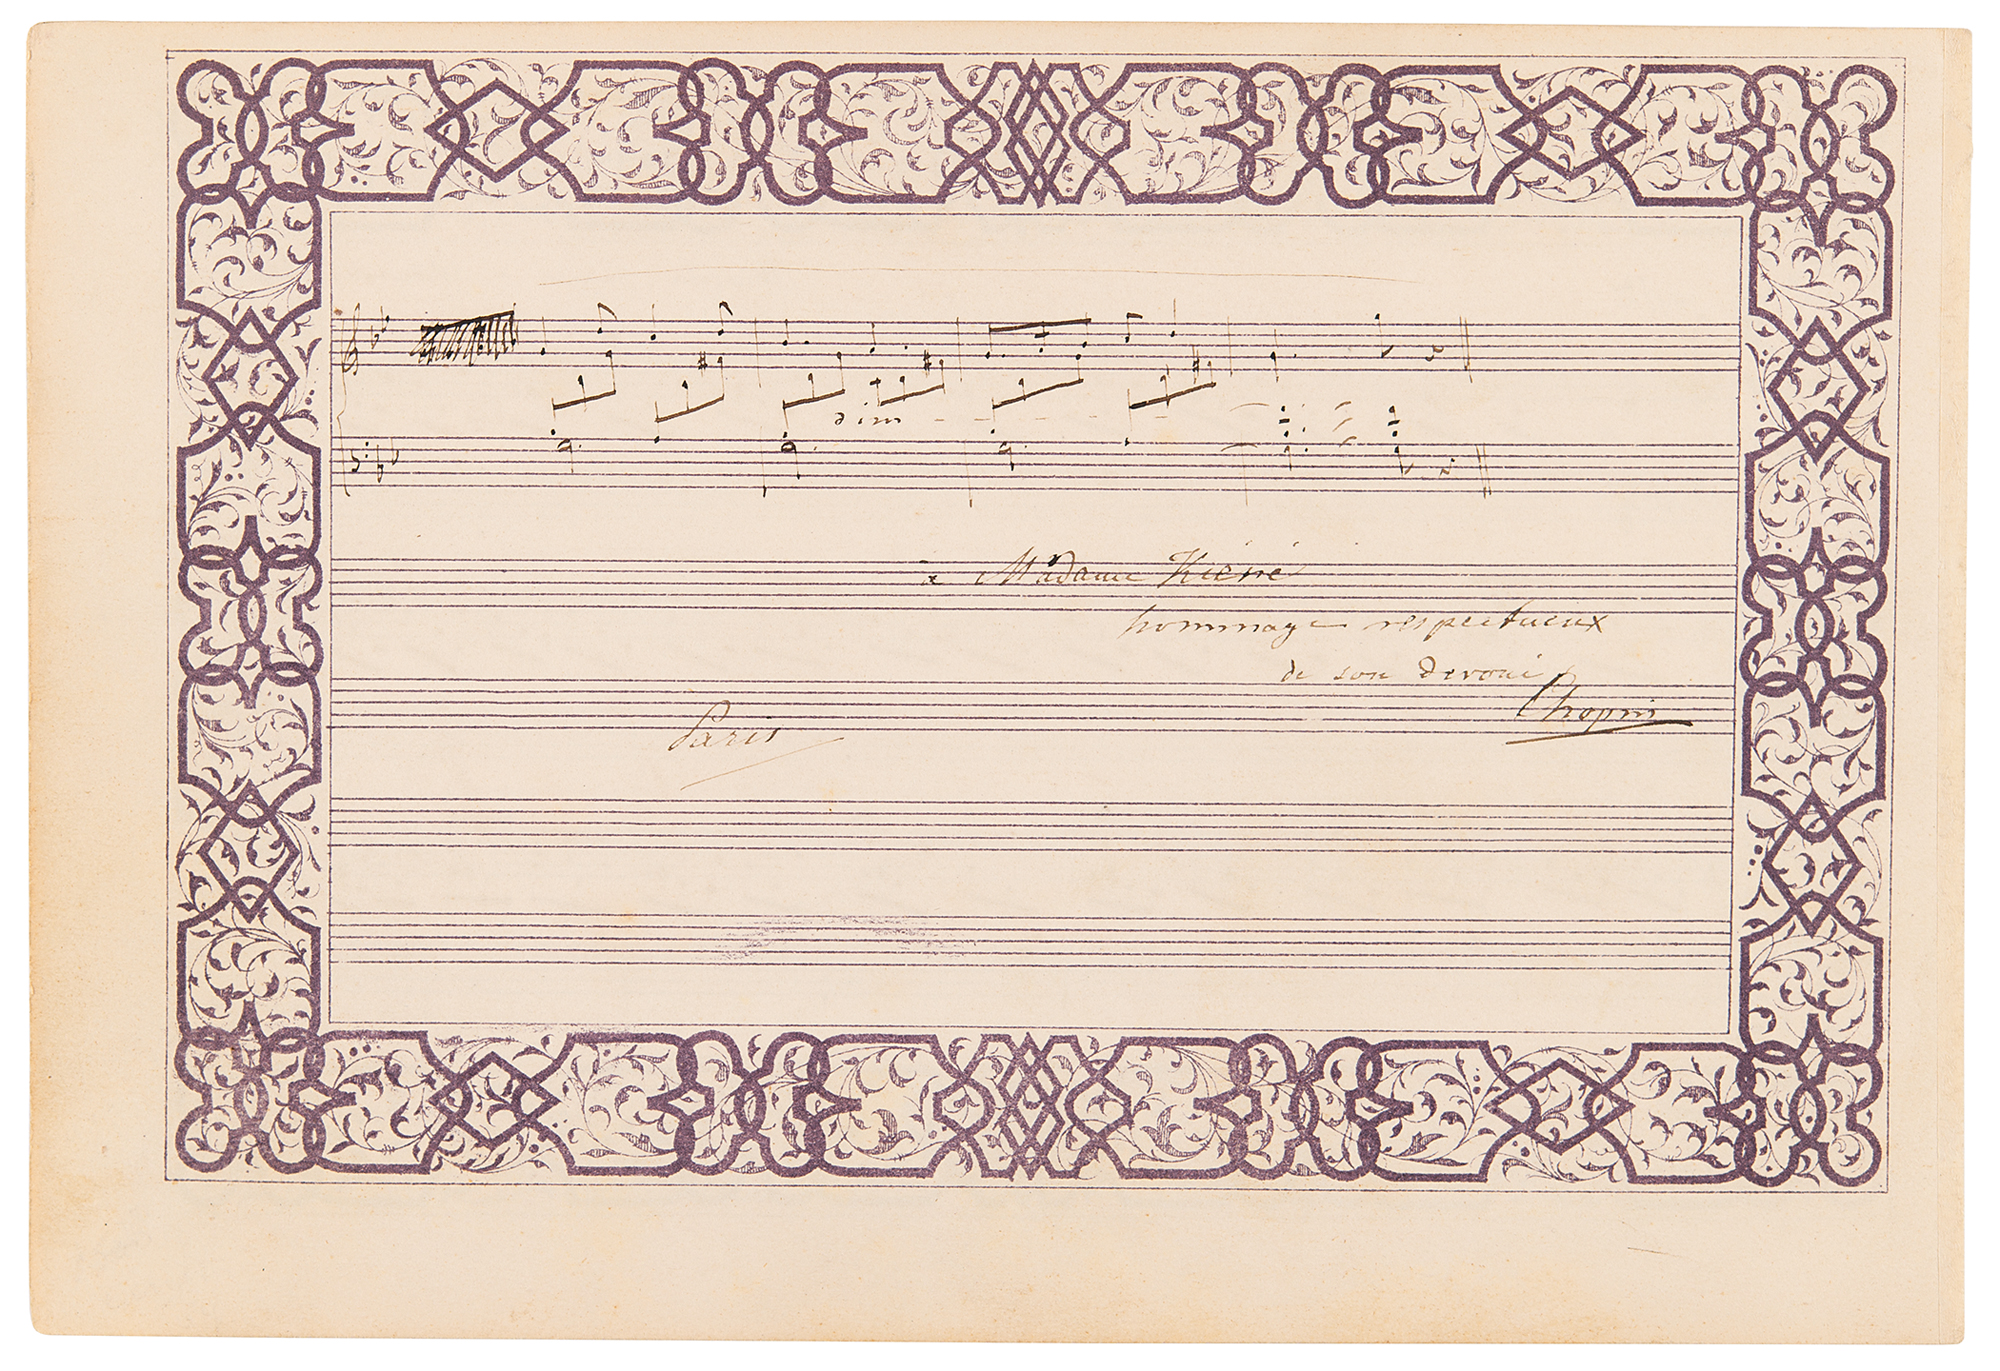 dim
à Madame Kiéné
hommage respectueux
de son devoué
Chopin
Paris